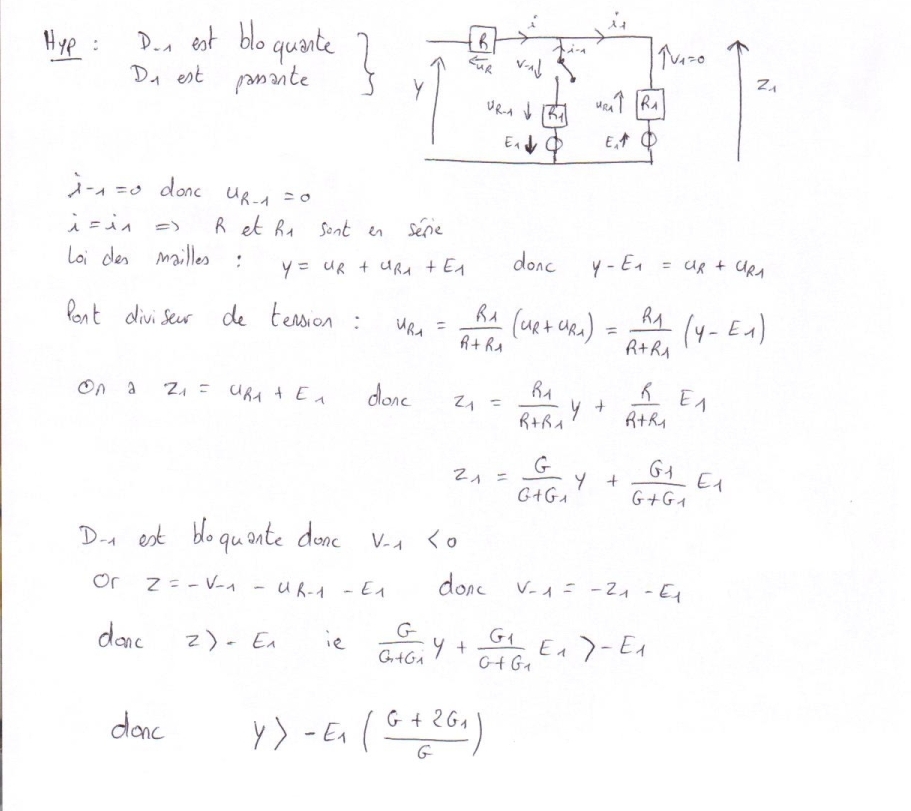 Hyp : D-1 est bloquante
D1 est passante
R i i1
uR V-1 i-1 V1=0
Y uR-1 R1 uR1 R1 Z1
E1 E1
i-1 = 0 donc uR-1 = 0
i = i1 => R et R1 sont en série
Loi des mailles : y = uR + uR1 + E1 donc y - E1 = uR + uR1
Pont diviseur de tension : uR1 = R1/(R+R1) (uR + uR1) = R1/(R+R1) (y - E1)
On a z1 = uR1 + E1 donc z1 = R1/(R+R1) y + R/(R+R1) E1
z1 = G/(G+G1) y + G1/(G+G1) E1
D-1 est bloquante donc V-1 < 0
Or z = -V-1 - uR-1 - E1 donc V-1 = -z1 - E1
donc z > - E1 ie G/(G+G1) y + G1/(G+G1) E1 > - E1
donc y > - E1 ( (G + 2G1)/G )